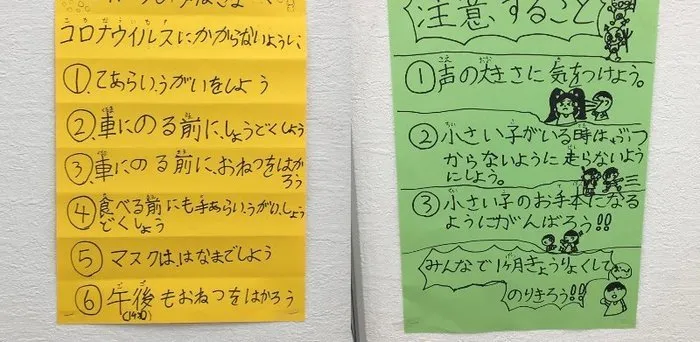 コロナウイルスにかからないように、
①てあらい、うがいをしよう
②車にのる前に、しょうどくしよう
③車にのる前に、おねつをはか
ろう
④食べる前にも手あらい、うがい、しょう
どくしよう
⑤マスクは、はなまでしよう
⑥午後もおねつをはかろう
注意すること
①声の大きさに気をつけよう。
②小さい子がいる時は、ぶつ
からないように走らないよう
にしよう。
③小さい子のお手本になる
ようにがんばろう!!
みんなで1ヶ月きょうりょくして
のりきろう!!